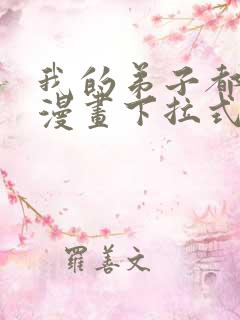 我的弟子都
漫畫下拉式
羅善文